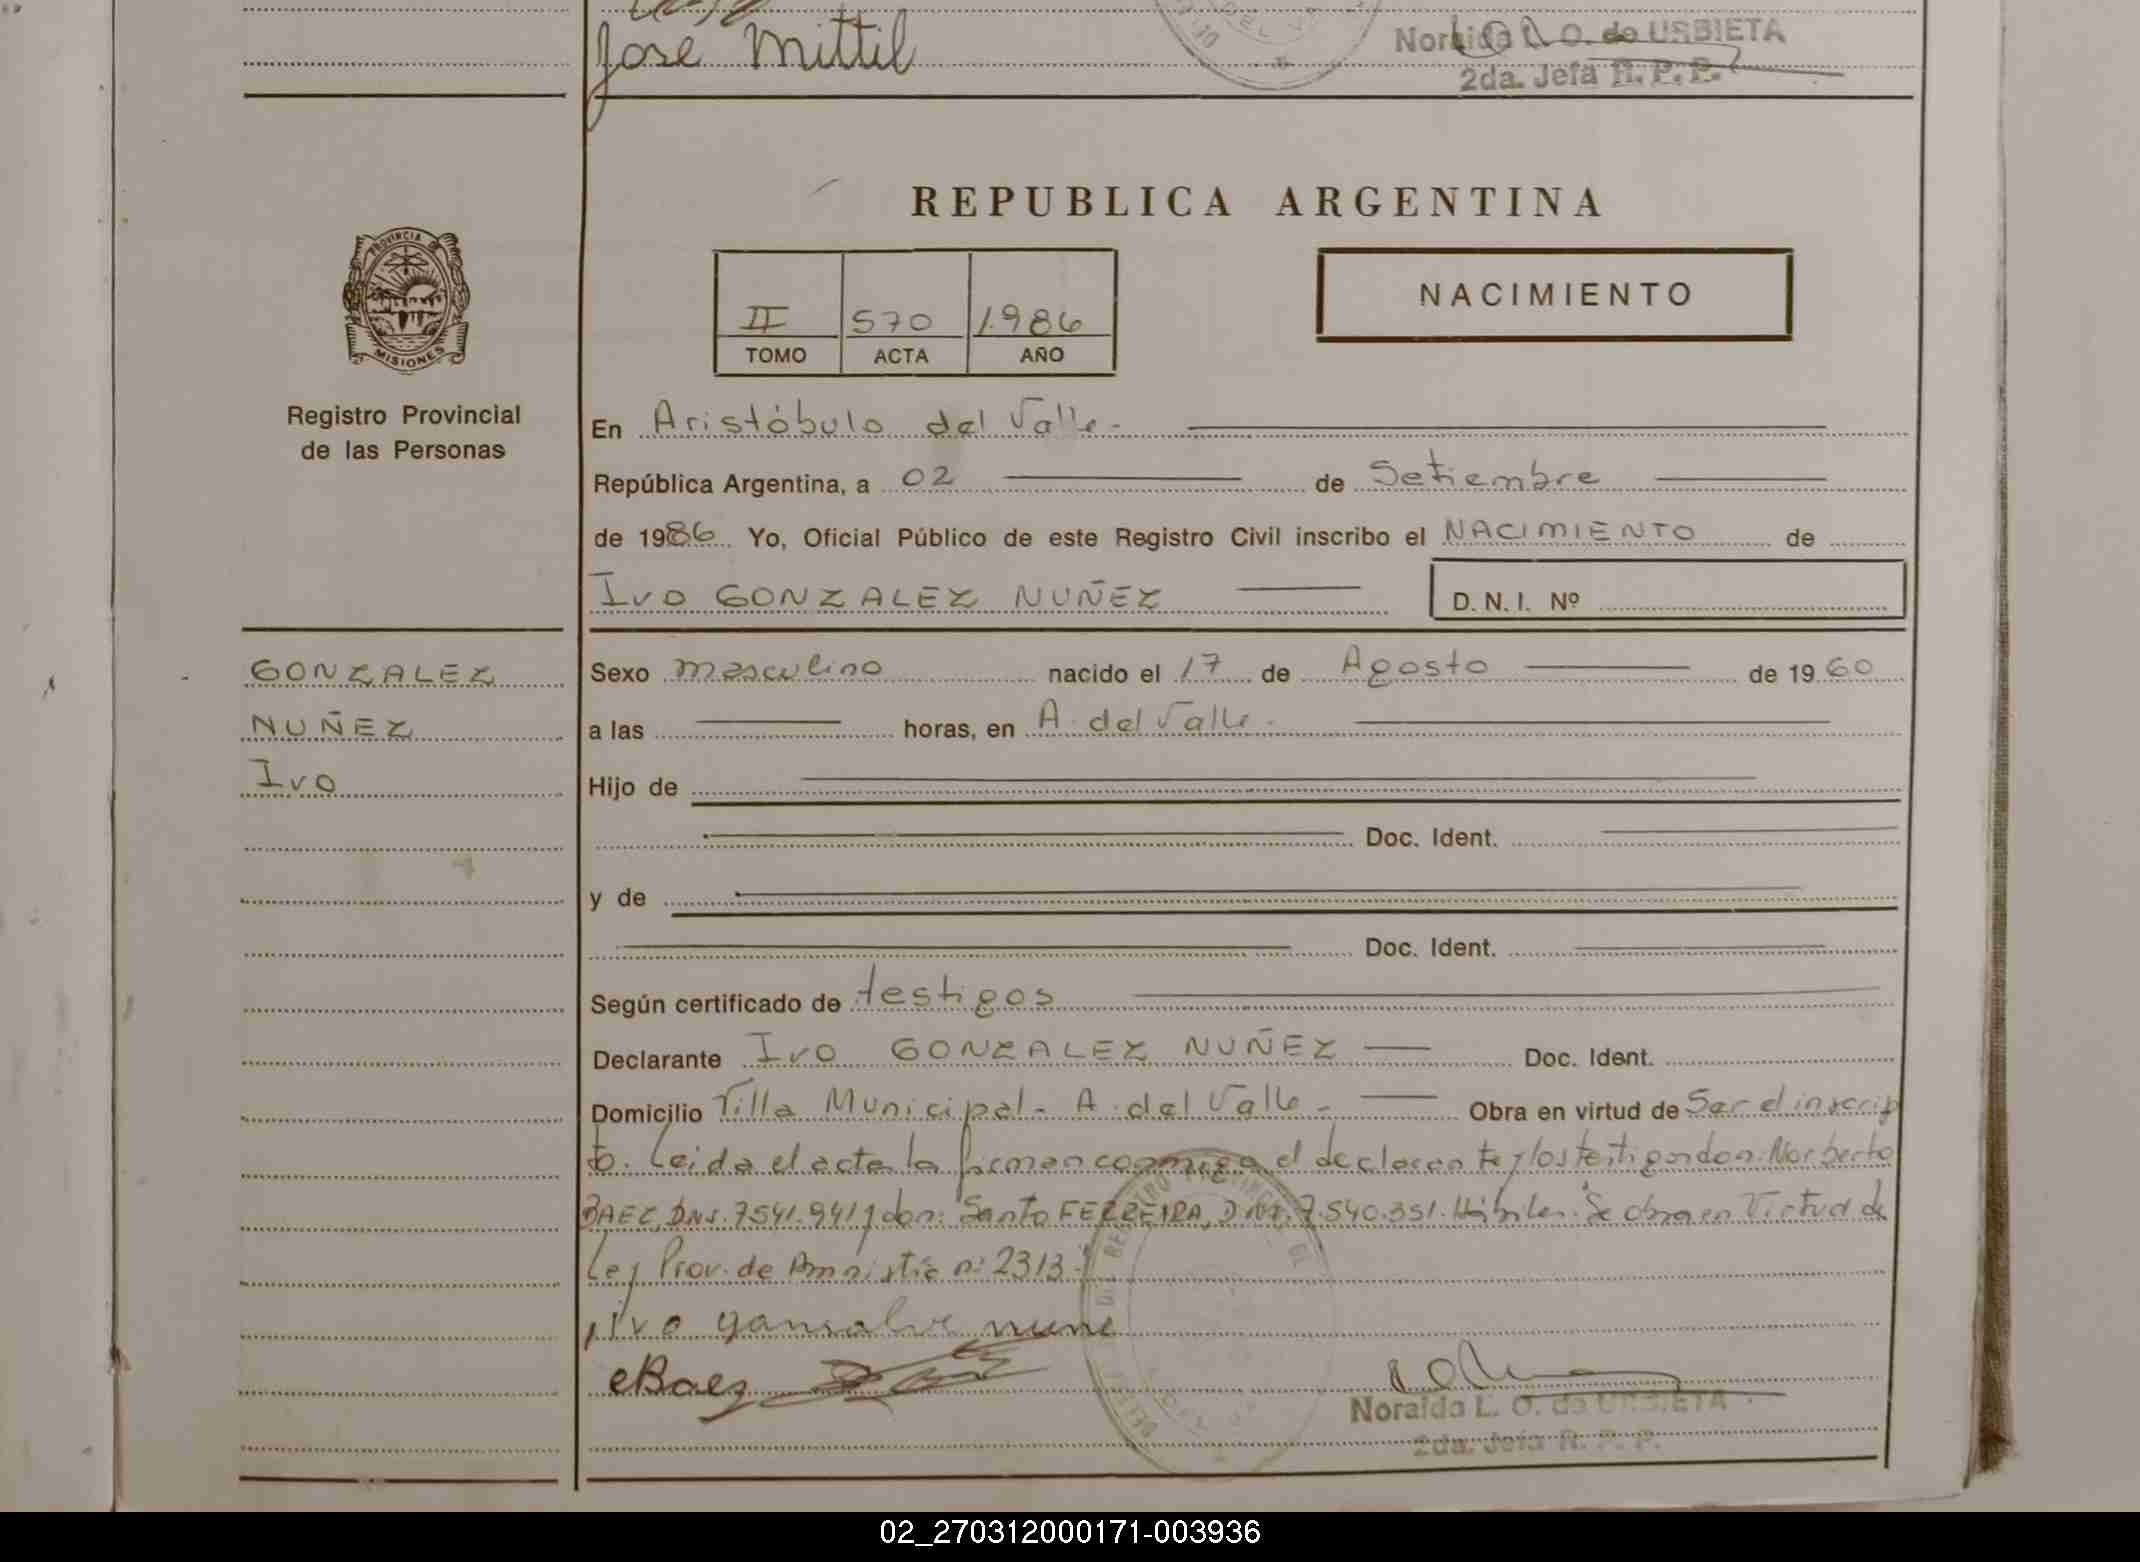 Jose Mittil
Noraida L. O. de URBIETA
2da. Jefa R. P. P.
REPUBLICA ARGENTINA
PROVINCIA DE
MISIONES
II 570 1.986
TOMO ACTA AÑO
NACIMIENTO
Registro Provincial
de las Personas
En Aristóbulo del Valle.-
República Argentina, a 02 de Setiembre
de 1986 Yo, Oficial Público de este Registro Civil inscribo el NACIMIENTO de
Ivo GONZALEZ NUÑEZ D. N. I. Nº
GONZALEZ
NUÑEZ
Ivo
Sexo masculino nacido el 17 de Agosto de 1960
a las horas, en A. del Valle.-
Hijo de
Doc. Ident.
y de
Doc. Ident.
Según certificado de testigos
Declarante Ivo GONZALEZ NUÑEZ Doc. Ident.
Domicilio Villa Municipal.- A. del Valle.- Obra en virtud de Ser el inscrip
to. Leida el acta la firman conmigo el declarante y los testigos don: Norberto
BAEZ, DNI. 7541.941 y don: Santo FERREIRA, DNI. 7.540.351. Hábiles. Se obra en Virtud de
Ley Prov. de Amnistía nº 2313.-
ivo gansalve nune
eBaez
Noraida L. O. de URBIETA
2da. Jefa R. P. P.
02_270312000171-003936